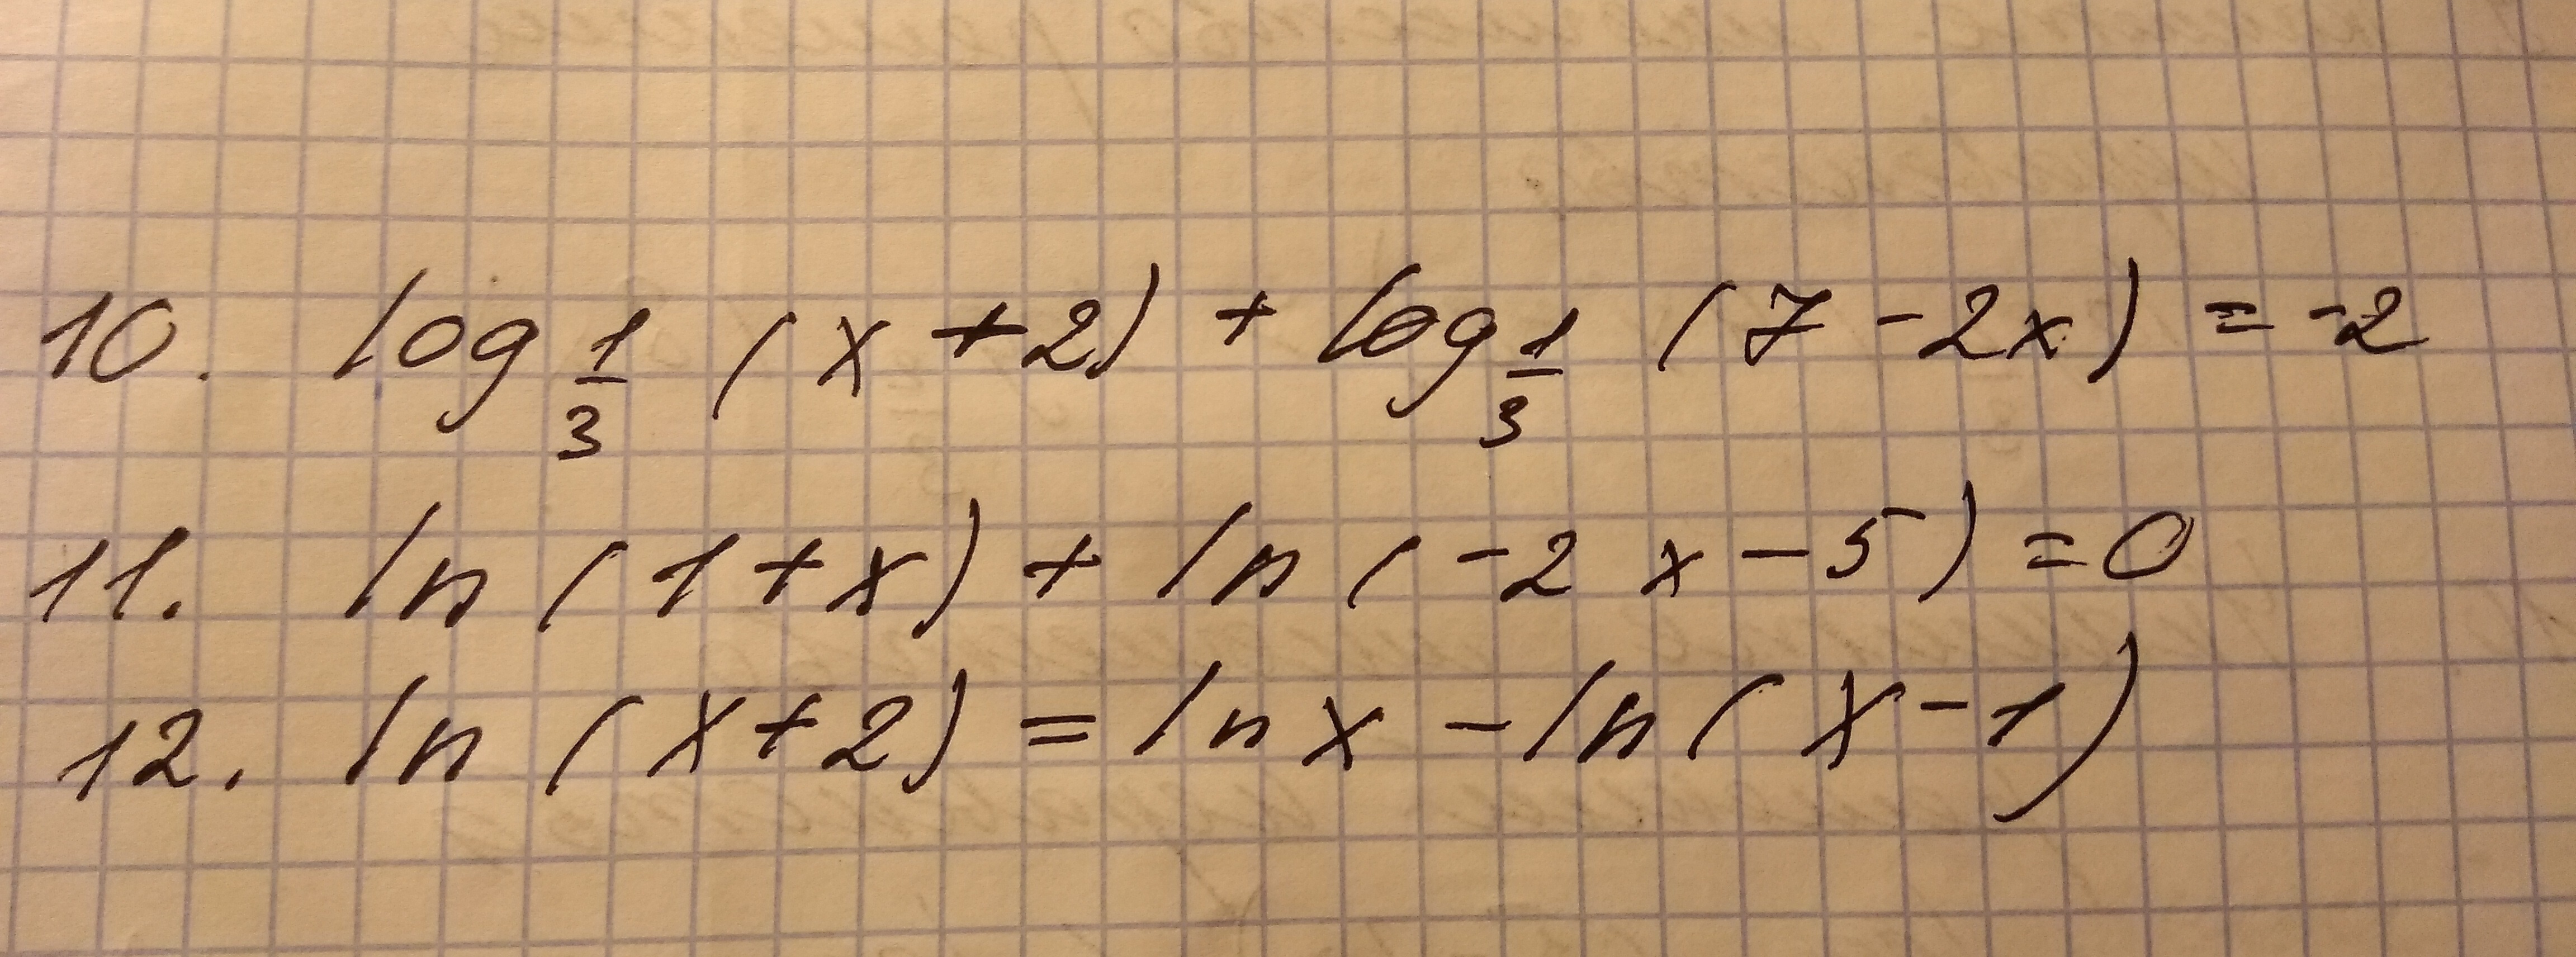 10. log 1/3 (x + 2) + log 1/3 (7 - 2x) = -2
11. ln (1 + x) + ln (-2x - 5) = 0
12. ln (x + 2) = ln x - ln (x - 1)